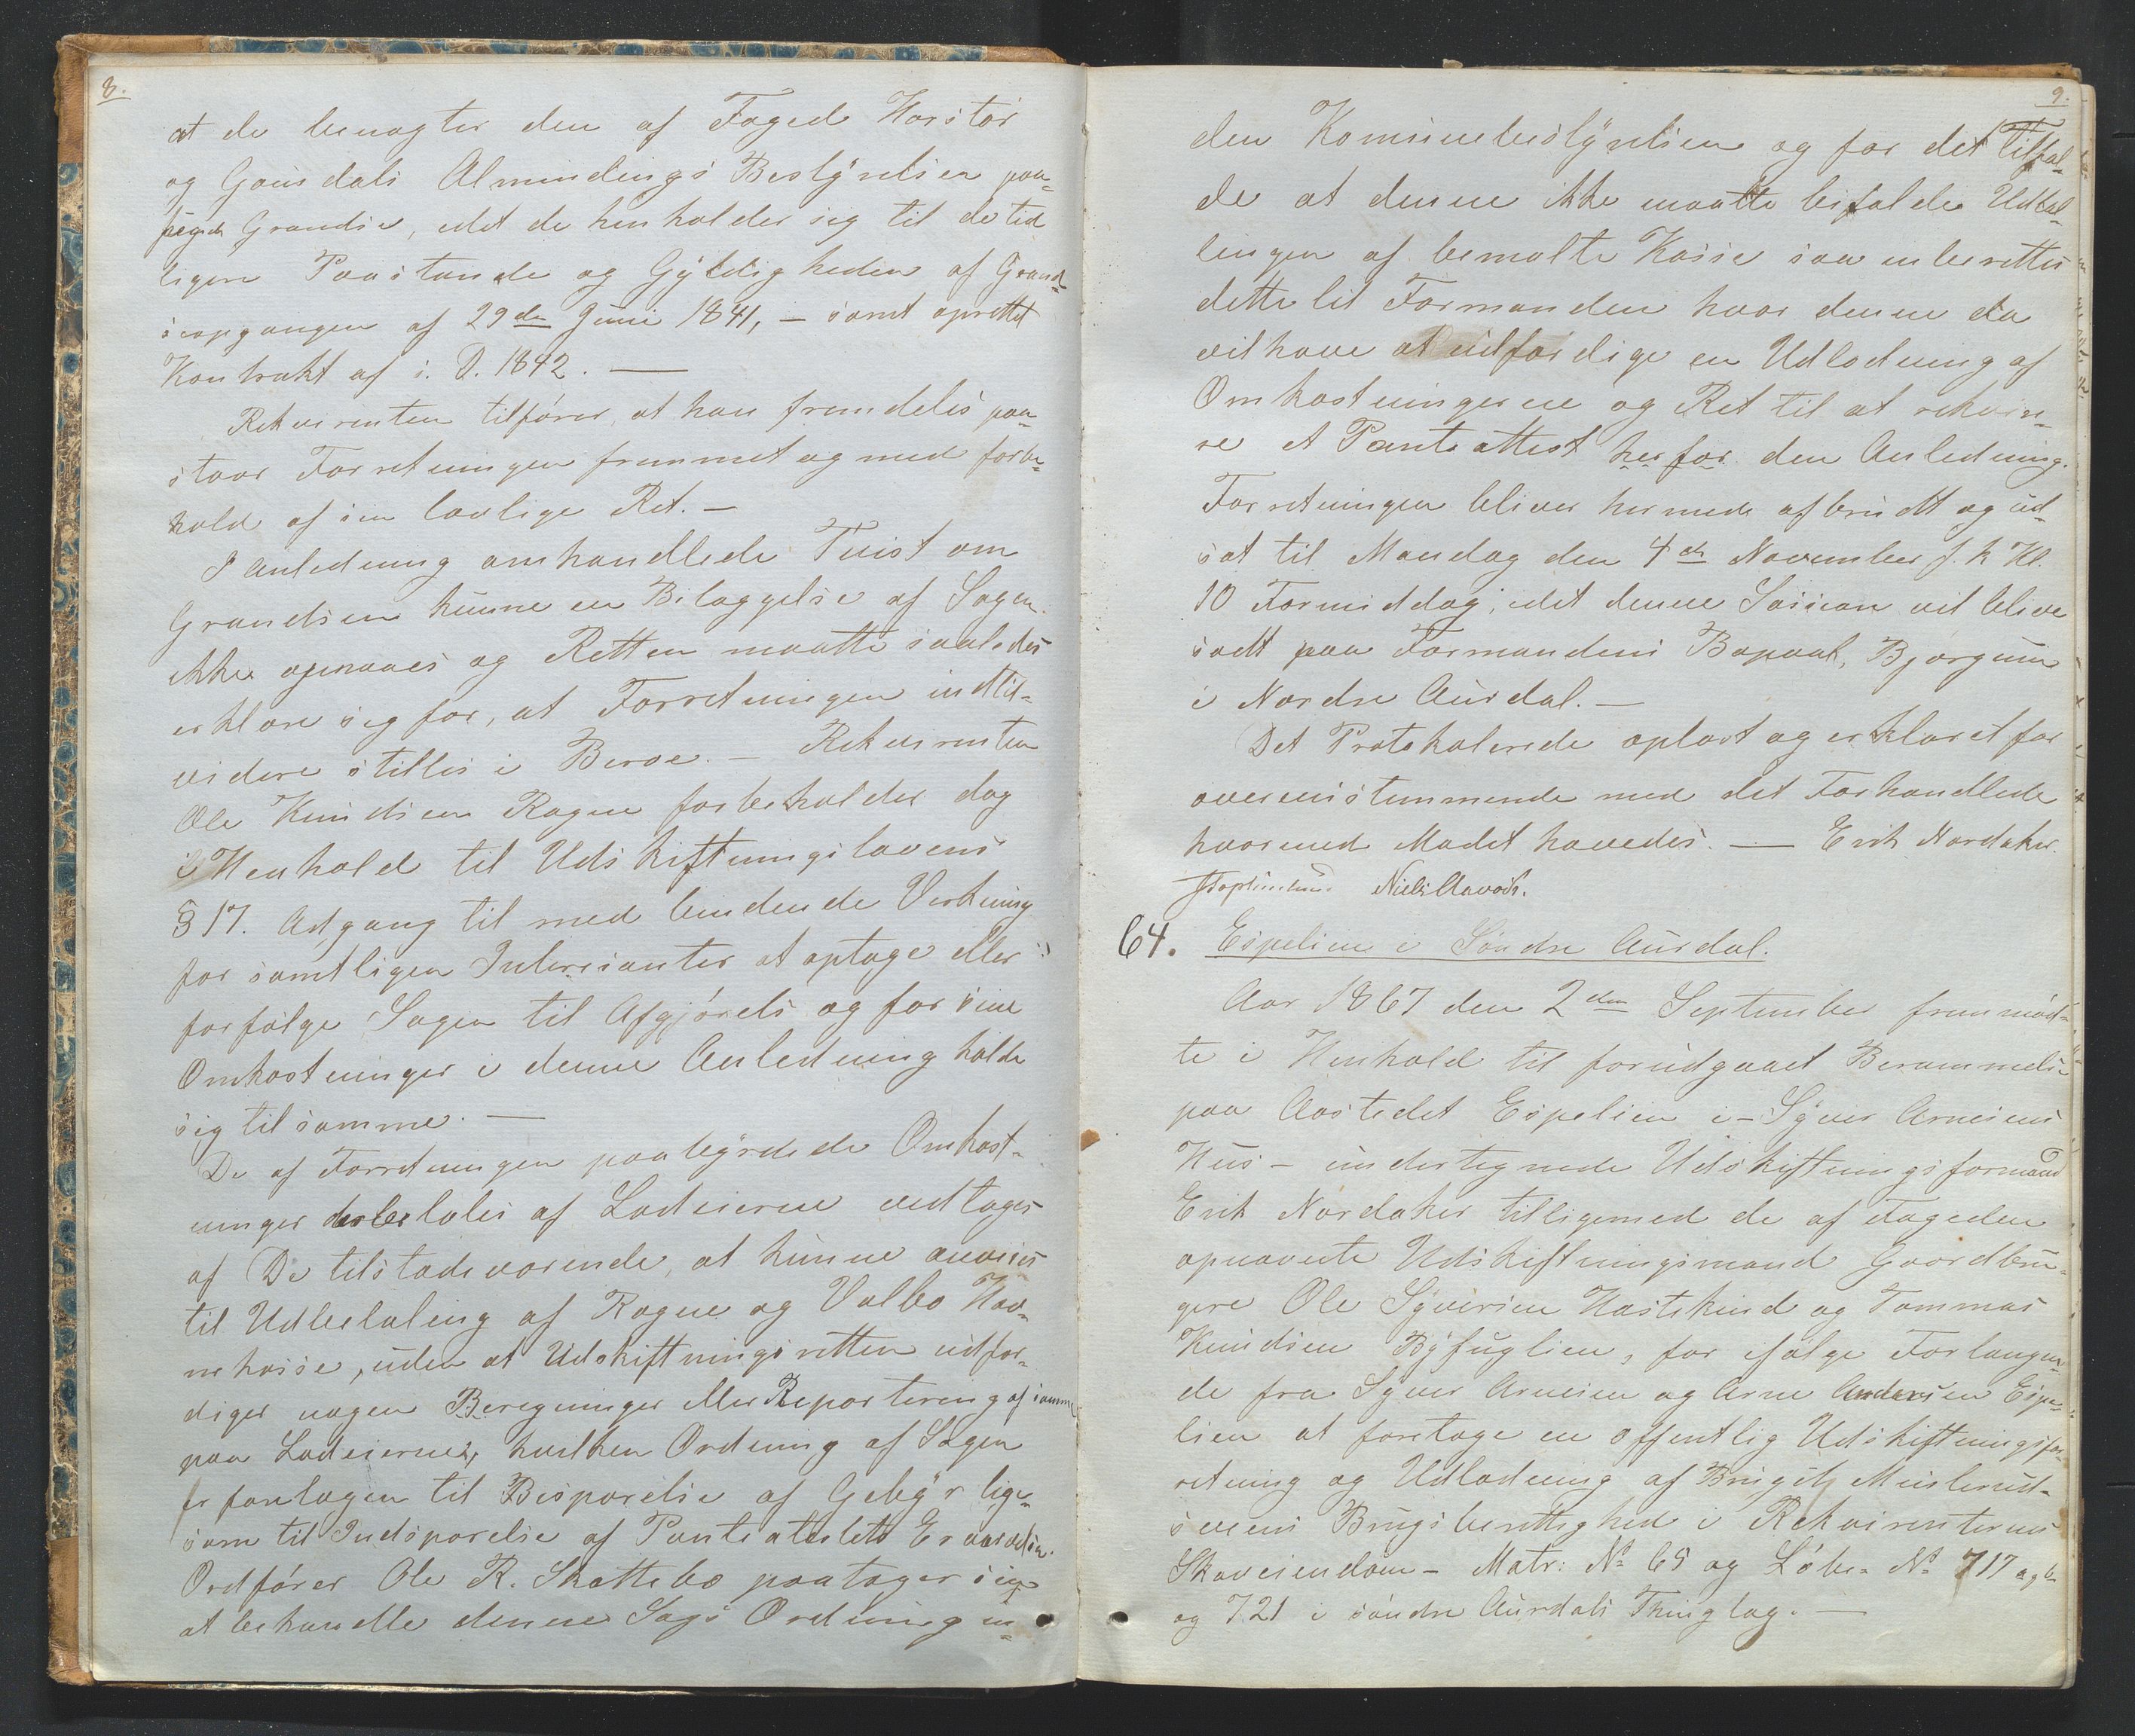 8.
at de benægter den af Foged Harstør
og Gausdals Almindings Bestyrelsen paa-
pegede Grændse, idet de henholder sig til de tid
ligere Paastande og Gyldigheden af Grænd
seopgangen af 29de Juni 1841, – samt oprettet
Kontrakt af i. D. 1842. —
Rekvirenten tilfører, at han fremdeles paa-
staar Forretningen fremmet og med forbe-
hold af sin lovlige Ret. –
I Anledning omhandlede Tvist om
Grændsen kunne en Bilæggelse af Sagen
ikke opnaaes og Retten maatte saaledes
erklære sig for, at Forretningen indtil-
videre stilles i Beroe. – Rekvirenten
Ole Knudsen Rogne forbeholder dog
i Henhold til Udskiftningslovens
§ 17. Adgang til med bindende Virkning
for samtligen Interessenter at optage eller
forfølge Sagen til Afgjørelse og for sine
Omkostninger i denne Anledning holde
sig til samme. —
De af Forretningen paabyrdede Omkost-
ninger der betales af Lodeierne vedtages
af De tilstædeværende, at kunne anvises
til Udbetaling af Rogne og Valbo Hav-
nekasse, uden at Udskiftningsretten udfær-
diger nogen Beregninger eller Repartering af samme
paa Lodeierne, hvilken Ordning af Sagen
er foretagen til Besparelse af Gebyr lige-
som til Indsparelse af Panteatestets Ervervelse.
Ordfører Ole R. Skattebo paatager sig
at behandle denne Sags Ordning in-
9.
den Komunebestyrelsen og for det Tilfæl-
de at denne ikke maatte bifalde Udbetal-
lingen af bemælte Kasse saa inberettes
dette til Formanden hvor denne da
vil have at udfærdige en Udlodning af
Omkostningerne og Ret til at rekvire-
re et Panteattest herfor den Anledning.
Forretningen bliver hermed afbrudt og ud-
sat til Mandag den 4de November f. k Kl.
10 Formiddag, idet denne Session vil blive
sadt paa Formandens Bopæl, Bjørgum
i Nordre Aurdal. —
Det Protokolerede oplæst og erklæret for
overensstemmende med det Forhandlede
hvormed Mødet hævedes. — Erik Nordaker.
Niels Aavoth.
64. Espelien i Søndre Aurdal.
Aar 1867 den 2den September fremmød-
te i Henhold til forudgaaet Berammelse
paa Aastedet Espelien i – Syver Arnesens
Hus – undertegnede Udskiftningsformand
Erik Nordaker tilligemed de af Fogeden
opnævnte Udskiftningsmænd Gaardbru-
gere Ole Syversen Hastekind og Tommas
Knudsen Byfuglien, for ifølge Forlangen-
de fra Syver Arnesen og Arne Andersen Espe-
lien at foretage en offentlig Udskiftningsfor-
retning og Udlodning af Brugets Muslerud-
sveens Brugsberettighed i Rekvirenternes
Skoveiendom – Matr: No 65 og Løbe- No 717 a, b
og 721 i søndre Aurdals Thinglag. —